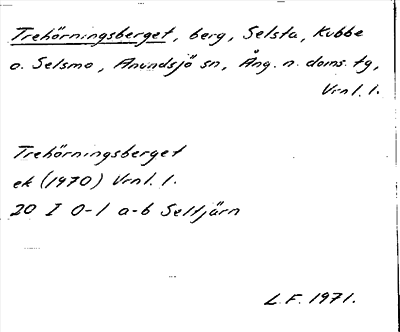 Trehörningsberget, berg, Selsta, Kubbe
o. Selsmo, Anundsjö sn, Ång. n. doms. tg,
Vrnl. l.
Trehörningsberget
ek (1970) Vrnl. l.
20 I 0-1 a-b Seltjärn
L.F. 1971.